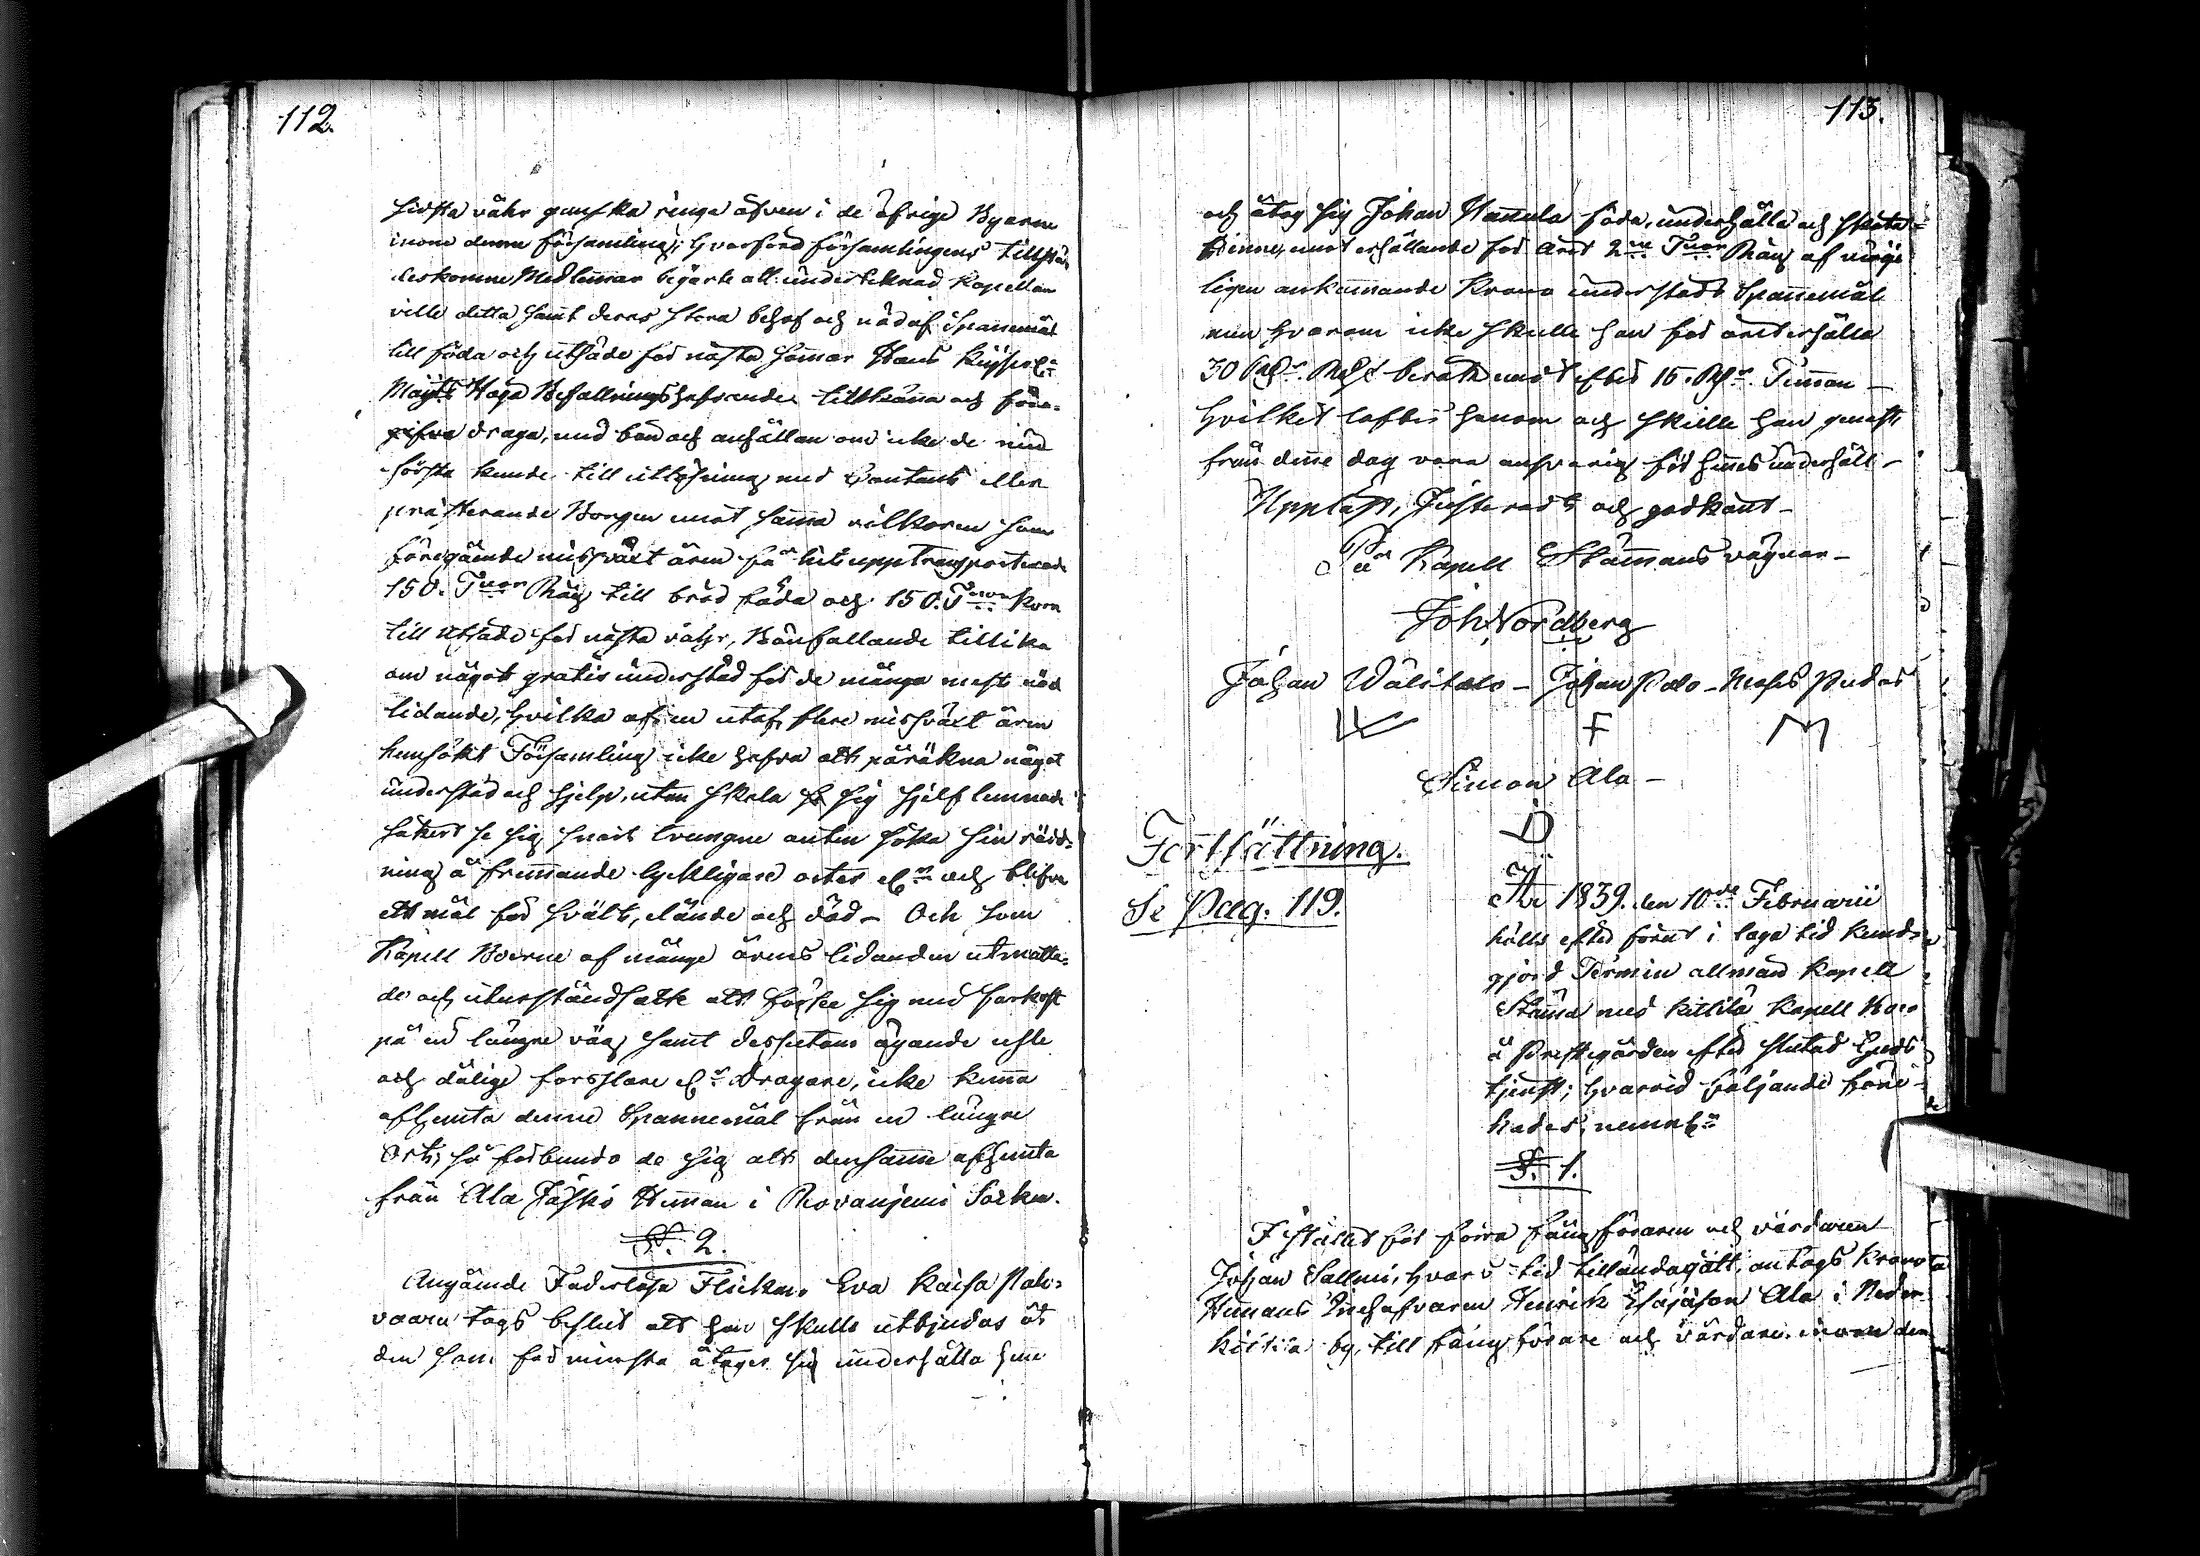 112.
sidsta råhr ganska ringa äfven i de öfrige Byarne
inom denna församling; hvarföre församlingens tillstä-
deskomne Medlemmar begärte att undertecknad Kapellan
ville detta samt deras stora behof och nöd af Spannemål
till föda och utsäde för nästa sommar Hans Kejserl:
Maijts Höga Befallningshafvande tillkänna och före-
draga, med bön och anhållan om icke de med
första kunde till utlösning med Contant eller
presterande Borgen mot samma vilkoren som
föregående missväxt åren få hit upptransporterade
150. T:nor Råg till bröd föda och 150. T:nor Korn
till Utsäde för nästa våhr, Bönfallande tillika
om något gratis understöd för de många mest nöd
lidande, hvilka af en utaf flere missväxt åren
hemsökt Församling icke hafva att påräkna något
understöd och hjelp, utan skola sig sjelf lemnade
säkert se sig snart tvungne antin söka sin rädd-
ning å fremmande lyckligare orter el:r och blifva
ett mål för svält, elände och död – Och som
Kapell Boerne af många årens lidanden utmatta-
de och uturståndsatte att förse sig med farkost
på en längre väg samt dessutom ägande usle
och dålige forsslare el:r Dragare, icke kunna
afhemta denne Spannemål från en längre
Ort; så förbundo de sig att densamme afhemta
från Ala Jääskö Hemman i Rovaniemi Sockn.
§. 2.
Angående Faderlösa Flickan Eva Kaisa Palo-
vaara togs beslut att hon skulle utbjudas åt
den som för minsta åtager sig underhålla henne
113.
och åtog sig Johan Hannula föda, underhålla och sköta
henne, mot erhållande för året 2:ne T:nor Råg af
ligen ankommande Krono understöds Spannemål
men hvarom icke skulle han för året erhålla
30 Rub:r Ass: beräknadt efter 15. Rub:r Tunnan –
hvilket loftes honom och skulle han genast
från denne dag vara ansvarig för hennes underhåll –
Uppläst, Justerad och godkänt –
På Kapell Stämmans vägnar –
Joh. Nordberg
Johan Wälitalo – Johan Palo – Moses Pudas
Simon Ala –
Fortsättning.
Se Pag. 119.
År 1839. den 10:de Februarii
hölls efter förut i laga tid kund-
gjord Termin allmän Kapell
Stämma med Kittilä Kapell Boer
å Prestegården efter slutad Guds
tjenst; hvarvid följande före-
hades, neml:n
§. 1.
I stället för förra fångföraren och vårdaren
Johan Sallmi, hvars tid tilländagått, antogs Krono
Hemmans Innehafvaren Henrik Esajasson Ala i Neder
Kittilä by, till fångförare och vårdare inom den